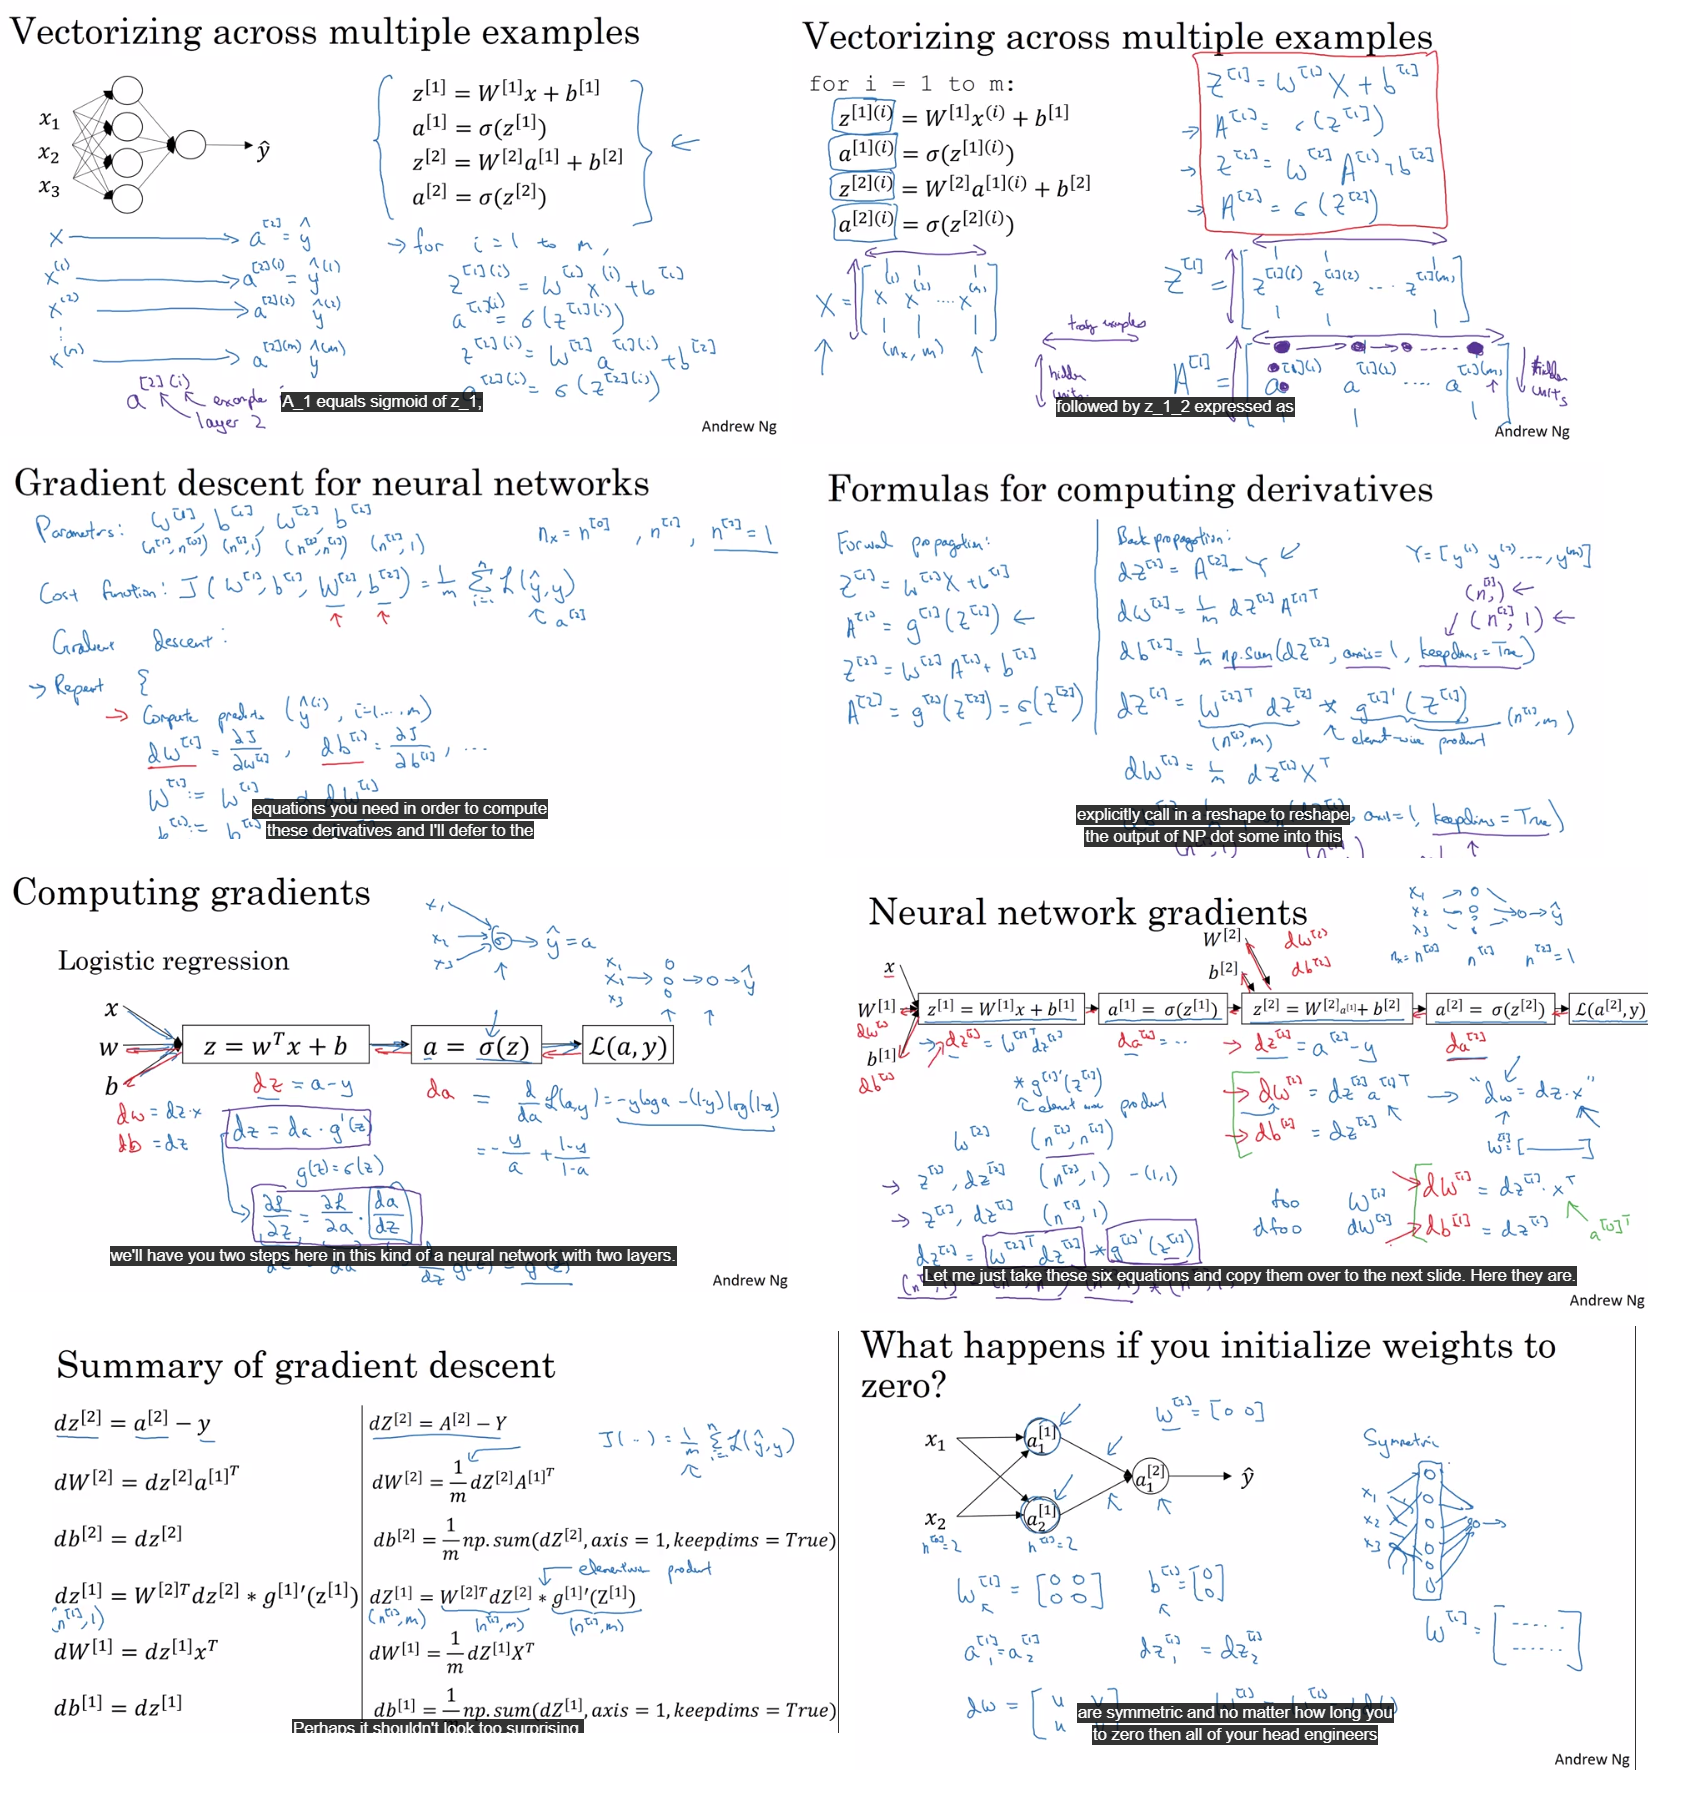 Vectorizing across multiple examples
x₁
x₂
x₃
ŷ
z^[1] = W^[1]x + b^[1]
a^[1] = σ(z^[1])
z^[2] = W^[2]a^[1] + b^[2]
a^[2] = σ(z^[2])
x → a^[2] = ŷ
x^(1) → a^[2](1) = ŷ^(1)
x^(2) → a^[2](2) ŷ^(2)
⋮
x^(m) → a^[2](m) ŷ^(m)
a^[2](i) example i
layer 2
→ for i = 1 to m,
z^[1](i) = W^[1] x^(i) + b^[1]
a^[1](i) = σ(z^[1](i))
z^[2](i) = W^[2] a^[1](i) + b^[2]
a^[2](i) = σ(z^[2](i))
A_1 equals sigmoid of z_1,
Andrew Ng
Vectorizing across multiple examples
for i = 1 to m:
z^[1](i) = W^[1]x^(i) + b^[1]
a^[1](i) = σ(z^[1](i))
z^[2](i) = W^[2]a^[1](i) + b^[2]
a^[2](i) = σ(z^[2](i))
Z^[1] = W^[1] X + b^[1]
→ A^[1] = σ(Z^[1])
→ Z^[2] = W^[2] A^[1] + b^[2]
→ A^[2] = σ(Z^[2])
X = [x^(1) x^(2) .... x^(m)]
(n_x, m)
Z^[1] = [z^[1](1) z^[1](2) ... z^[1](m)]
A^[1] = [a^[1](1) a^[1](2) .... a^[1](m)]
hidden units
hidden units
followed by z_1_2 expressed as
Andrew Ng
Gradient descent for neural networks
Parameters: W^[1], b^[1], W^[2], b^[2]
(n^[1], n^[0]) (n^[1], 1) (n^[2], n^[1]) (n^[2], 1)
n_x = n^[0], n^[1], n^[2] = 1
Cost function: J(W^[1], b^[1], W^[2], b^[2]) = 1/m Σ L(ŷ, y)
a^[2]
Gradient descent:
→ Repeat {
→ Compute predicts (ŷ^(i), i=1...m)
dW^[1] = ∂J/∂W^[1], db^[1] = ∂J/∂b^[1], ...
W^[1] := W^[1] - α dW^[1]
b^[1] := b^[1]
equations you need in order to compute
these derivatives and I'll defer to the
Formulas for computing derivatives
Forward propagation:
Z^[1] = W^[1]X + b^[1]
A^[1] = g^[1](Z^[1]) ←
Z^[2] = W^[2]A^[1] + b^[2]
A^[2] = g^[2](Z^[2]) = σ(Z^[2])
Back propagation:
dZ^[2] = A^[2] - Y
Y = [y^(1) y^(2) ..., y^(m)]
dW^[2] = 1/m dZ^[2] A^[1]T
(n^[2],) ←
(n^[2], 1) ←
db^[2] = 1/m np.sum(dZ^[2], axis=1, keepdims=True)
dZ^[1] = W^[2]T dZ^[2] * g^[1]'(Z^[1])
(n^[1], m) element-wise product (n^[1], m)
dW^[1] = 1/m dZ^[1] X^T
axis=1, keepdims=True)
explicitly call in a reshape to reshape
the output of NP dot some into this
Computing gradients
x₁
x₂
x₃
σ → ŷ = a
x₁
x₂
x₃
ŷ
Logistic regression
x
w
b
z = w^T x + b
a = σ(z)
L(a, y)
dz = a - y
dw = dz·x
db = dz
dz = da · g'(z)
g(z) = σ(z)
∂L/∂z = ∂L/∂a · da/dz
da = d/da L(a,y) = -y log a - (1-y) log(1-a)
= -y/a + (1-y)/(1-a)
we'll have you two steps here in this kind of a neural network with two layers.
Andrew Ng
Neural network gradients
x₁
x₂
x₃
ŷ
n_x = n^[0] n^[1] n^[2] = 1
W^[2] dW^[2]
b^[2] db^[2]
x
W^[1]
dW^[1]
b^[1]
db^[1]
z^[1] = W^[1]x + b^[1]
a^[1] = σ(z^[1])
z^[2] = W^[2]a^[1] + b^[2]
a^[2] = σ(z^[2])
L(a^[2], y)
→ dz^[1] = W^[2]T dz^[2]
* g^[1]'(z^[1])
element wise product
da^[1] = ...
→ dz^[2] = a^[2] - y
da^[2]
→ dW^[2] = dz^[2] a^[1]T → "dw = dz·x"
→ db^[2] = dz^[2]
W^[2] (n^[2], n^[1])
→ z^[2], dz^[2] (n^[2], 1) - (1,1)
→ z^[1], dz^[1] (n^[1], 1)
foo W^[1]
dfoo dW^[1]
dW^[1] = dz^[1]·x^T
db^[1] = dz^[1]
a^[0]T
dz^[1] = W^[2]T dz^[2] * g^[1]'(z^[1])
Let me just take these six equations and copy them over to the next slide. Here they are.
Andrew Ng
Summary of gradient descent
dz^[2] = a^[2] − y
dW^[2] = dz^[2]a^[1]T
db^[2] = dz^[2]
dz^[1] = W^[2]T dz^[2] * g^[1]'(z^[1])
(n^[1], 1)
dW^[1] = dz^[1]x^T
db^[1] = dz^[1]
dZ^[2] = A^[2] − Y
J(..) = 1/m Σ L(ŷ, y)
dW^[2] = 1/m dZ^[2]A^[1]T
db^[2] = 1/m np.sum(dZ^[2], axis = 1, keepdims = True)
elementwise product
dZ^[1] = W^[2]T dZ^[2] * g^[1]'(Z^[1])
(n^[1], m) (n^[1], m) (n^[1], m)
dW^[1] = 1/m dZ^[1]X^T
db^[1] = 1/m np.sum(dZ^[1], axis = 1, keepdims = True)
Perhaps it shouldn't look too surprising
What happens if you initialize weights to
zero?
x₁
x₂
a₁^[1]
a₂^[1]
a₁^[2]
ŷ
W^[2] = [0 0]
n^[0] = 2
n^[1] = 2
Symmetric
x₁
x₂
x₃
W^[1] = [0 0; 0 0] b^[1] = [0; 0]
a₁^[1] = a₂^[1] dz₁^[1] = dz₂^[1]
W^[1] = [.....]
dW = [u v
are symmetric and no matter how long you
to zero then all of your head engineers
Andrew Ng